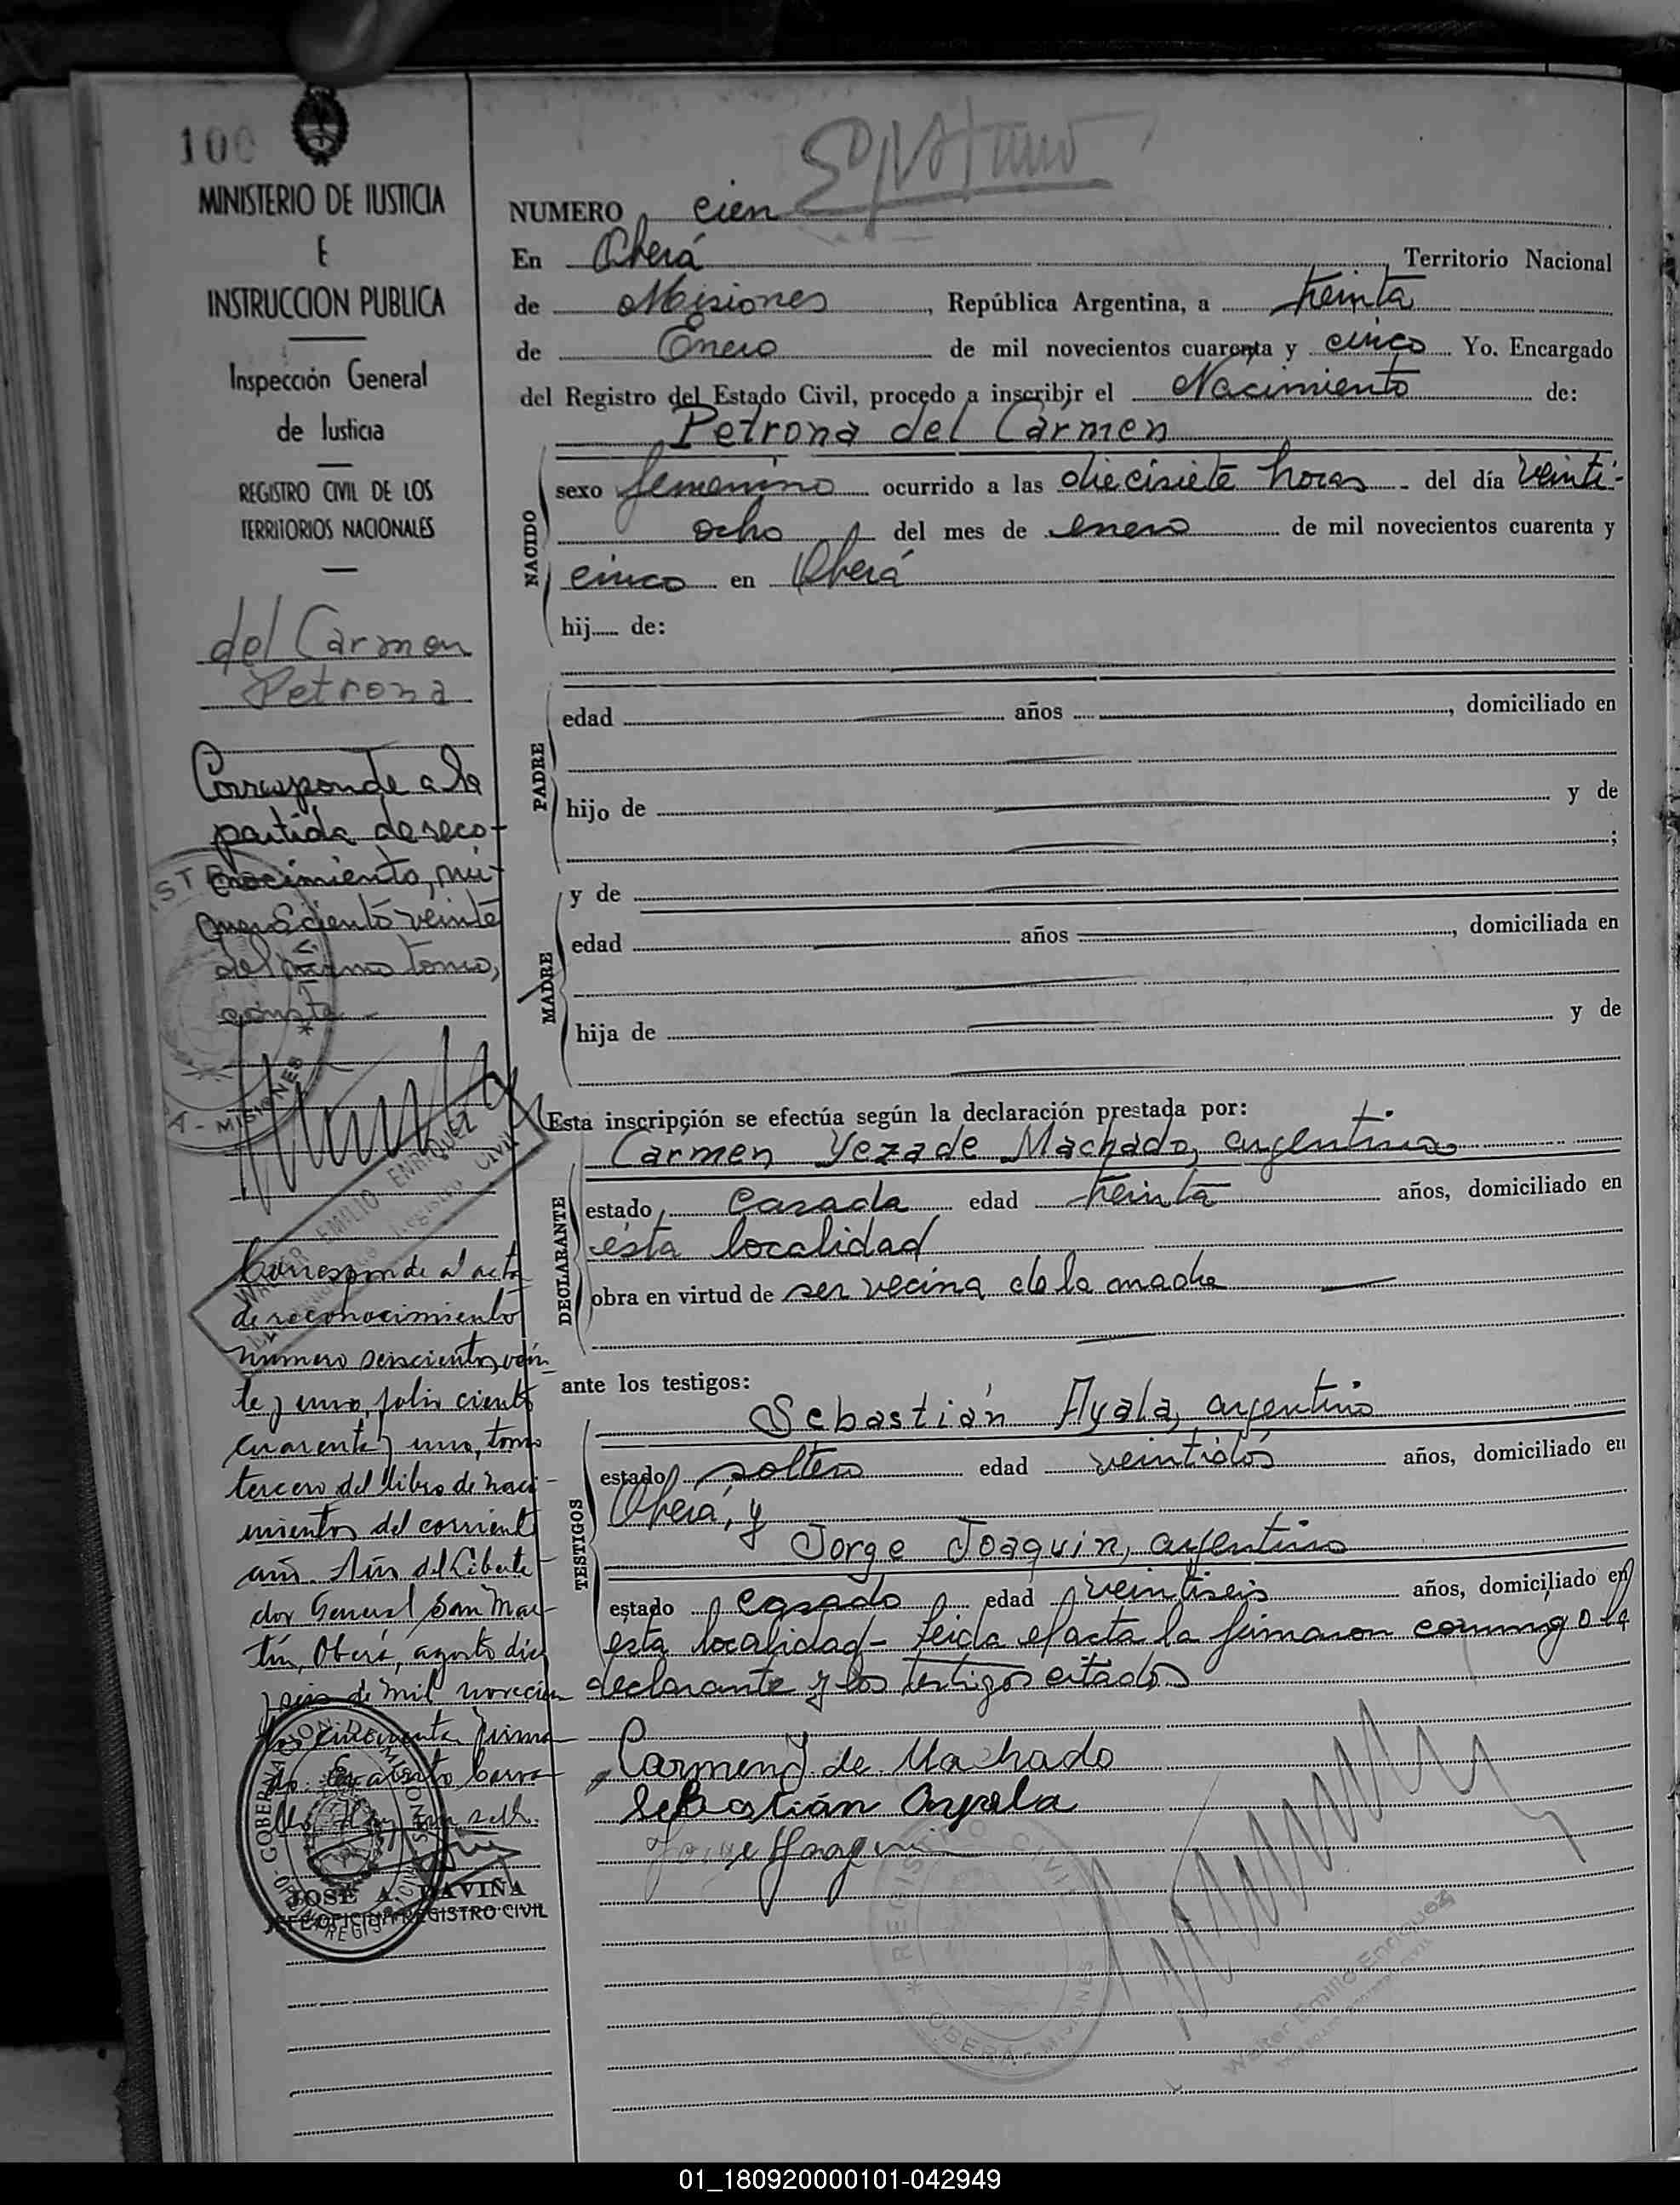 100
MINISTERIO DE JUSTICIA
E
INSTRUCCION PUBLICA
Inspección General
de Justicia
REGISTRO CIVIL DE LOS
TERRITORIOS NACIONALES
del Carmen
Petrona
Corresponde a la
partida de reco-
nocimiento, nú-
mero ciento veinte
del mismo tomo,
conste -
WALTER EMILIO ENRIQUEZ
Corresponde al acta
de reconocimiento
número seiscientos vein
te y uno, folio ciento
cuarenta y uno, tomo
tercero del libro de naci-
mientos del corriente
año. Año del Liberta-
dor General San Mar-
tín, Oberá, agosto diez
y seis de mil novecien
tos cincuenta firma
JOSE A. DAVIÑA
JEFE OFICINA REGISTRO CIVIL
NUMERO cien
En Oberá Territorio Nacional
de Misiones, República Argentina, a treinta
de Enero de mil novecientos cuarenta y cinco Yo. Encargado
del Registro del Estado Civil, procedo a inscribir el Nacimiento de:
Petrona del Carmen
NACIDO
sexo femenino ocurrido a las diecisiete horas - del día veinti-
ocho del mes de enero de mil novecientos cuarenta y
cinco en Oberá
hij...... de:
PADRE
edad años , domiciliado en
hijo de y de
;
MADRE
y de
edad años , domiciliada en
hija de y de
Esta inscripción se efectúa según la declaración prestada por:
DECLARANTE
Carmen Yeza de Machado, argentina
estado casada edad treinta años, domiciliado en
ésta localidad
obra en virtud de ser vecina de la madre
ante los testigos:
TESTIGOS
Sebastián Ayala, argentino
estado soltero edad veintidós años, domiciliado en
Oberá, y
Jorge Joaquin, argentino
estado casado edad veintiseis años, domiciliado en
esta localidad - leida el acta la firmaron conmigo la
declarante y los testigos citados
Carmen Y. de Machado
Sebastián Ayala
Jorge Joaquin
REGISTRO CIVIL
OBERA - MISIONES
Walter Emilio Enriquez
01_180920000101-042949